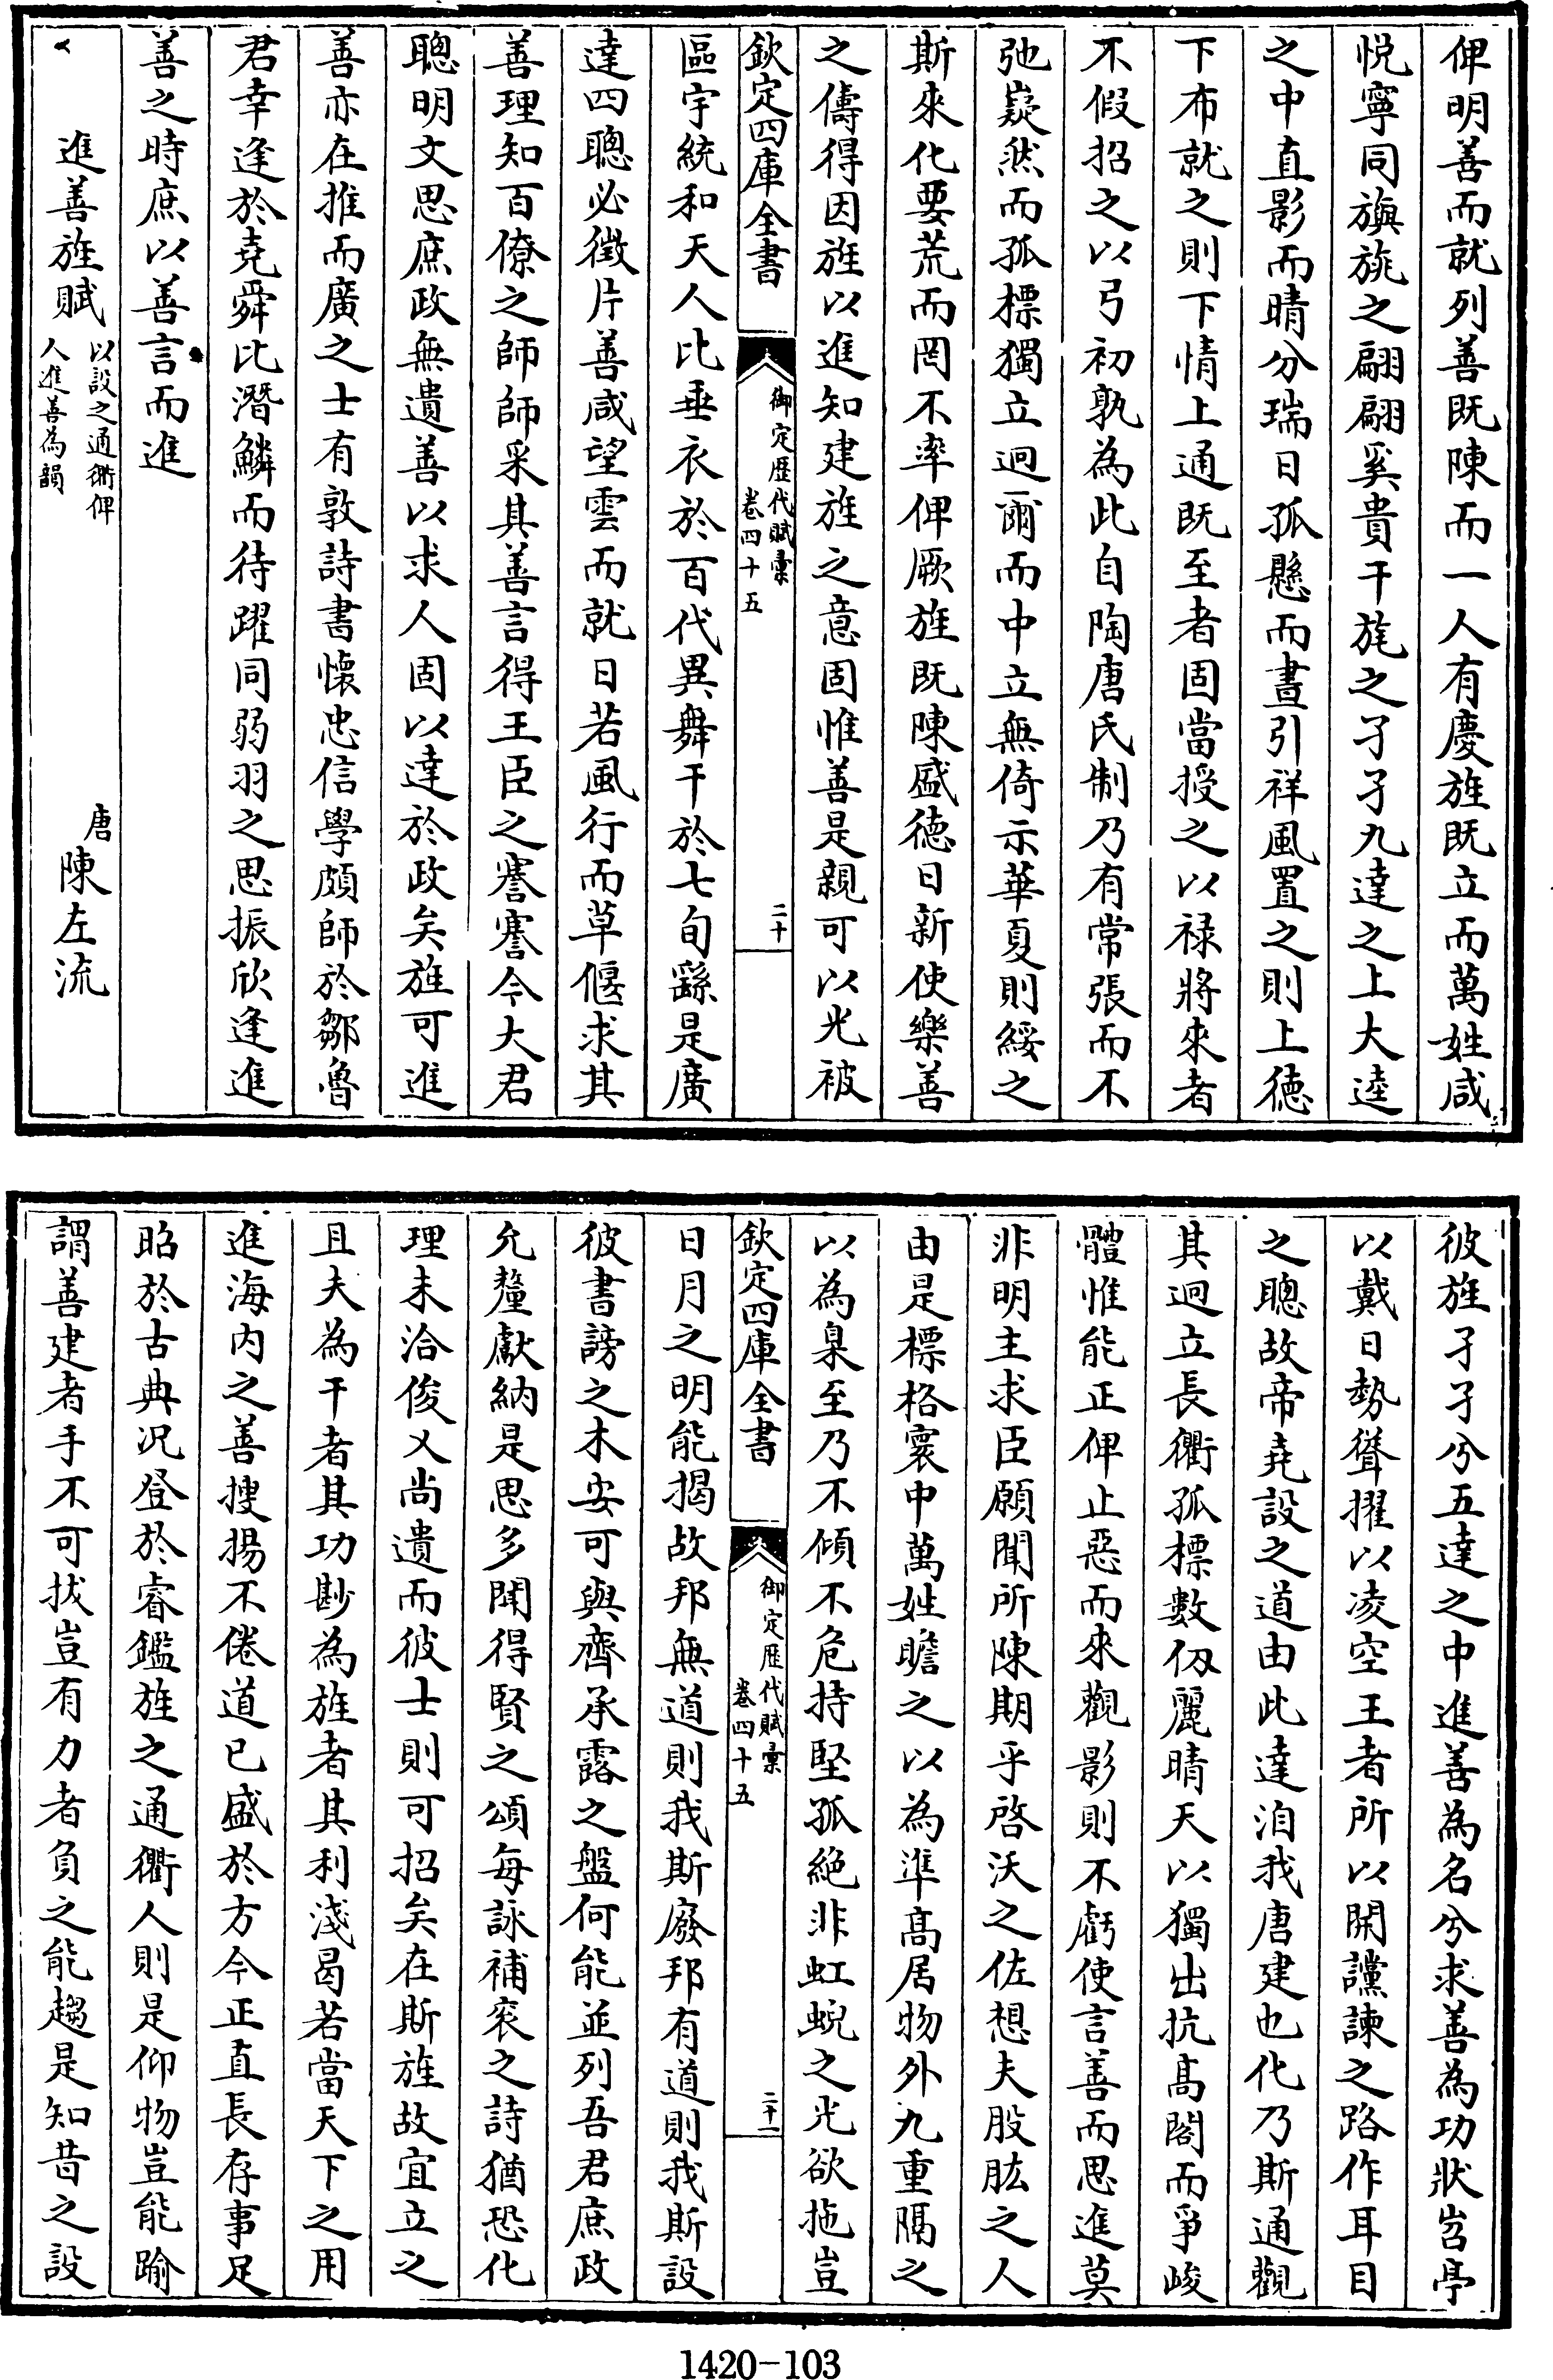 俾明善而就列善既陳而一人有慶旌既立而萬姓咸
悦寧同旟旐之翩翩奚貴干旄之孑孑九達之上大逵
之中直影而晴分瑞日孤懸而晝引祥風置之則上德
下布就之則下情上通既至者固當授之以禄將來者
不假招之以弓初孰為此自陶唐氏制乃有常張而不
弛嶷然而孤標獨立迥爾而中立無倚示華夏則綏之
斯來化要荒而罔不率俾厥旌既陳盛德日新使樂善
之儔得因旌以進知建旌之意固惟善是親可以光被
欽定四庫全書
御定歴代賦彙
卷四十五
二十
區宇統和天人比垂衣於百代異舞干於七旬繇是廣
達四聰必徵片善咸望雲而就日若風行而草偃求其
善理知百僚之師師采其善言得王臣之謇謇今大君
聰明文思庶政無遺善以求人固以達於政矣旌可進
善亦在推而廣之士有敦詩書懷忠信學頗師於鄒魯
君幸逢於堯舜比潛鱗而待躍同弱羽之思振欣逢進
善之時庶以善言而進
進善旌賦
以設之通衢俾
人進善為韻
唐
陳左流
彼旌孑孑兮五達之中進善為名兮求善為功狀岧亭
以戴日勢聳擢以凌空王者所以開讜諫之路作耳目
之聰故帝堯設之道由此達洎我唐建也化乃斯通觀
其迥立長衢孤標數仭麗晴天以獨出抗髙閣而爭峻
體惟能正俾止惡而來觀影則不虧使言善而思進莫
非明主求臣願聞所陳期乎啓沃之佐想夫股肱之人
由是標格寰中萬姓瞻之以為準髙居物外九重隔之
以為臬至乃不傾不危持堅孤絶非虹蜺之光欲拖豈
欽定四庫全書
御定歴代賦彙
卷四十五
二十一
日月之明能揭故邦無道則我斯廢邦有道則我斯設
彼書謗之木安可與齊承露之盤何能並列吾君庶政
允釐獻納是思多聞得賢之頌每詠補衮之詩猶恐化
理未洽俊乂尚遺而彼士則可招矣在斯旌故宜立之
且夫為干者其功尠為旌者其利淺曷若當天下之用
進海内之善搜揚不倦道已盛於方今正直長存事足
昭於古典况登於睿鑑旌之通衢人則是仰物豈能踰
謂善建者手不可拔豈有力者負之能趨是知昔之設
1420-103